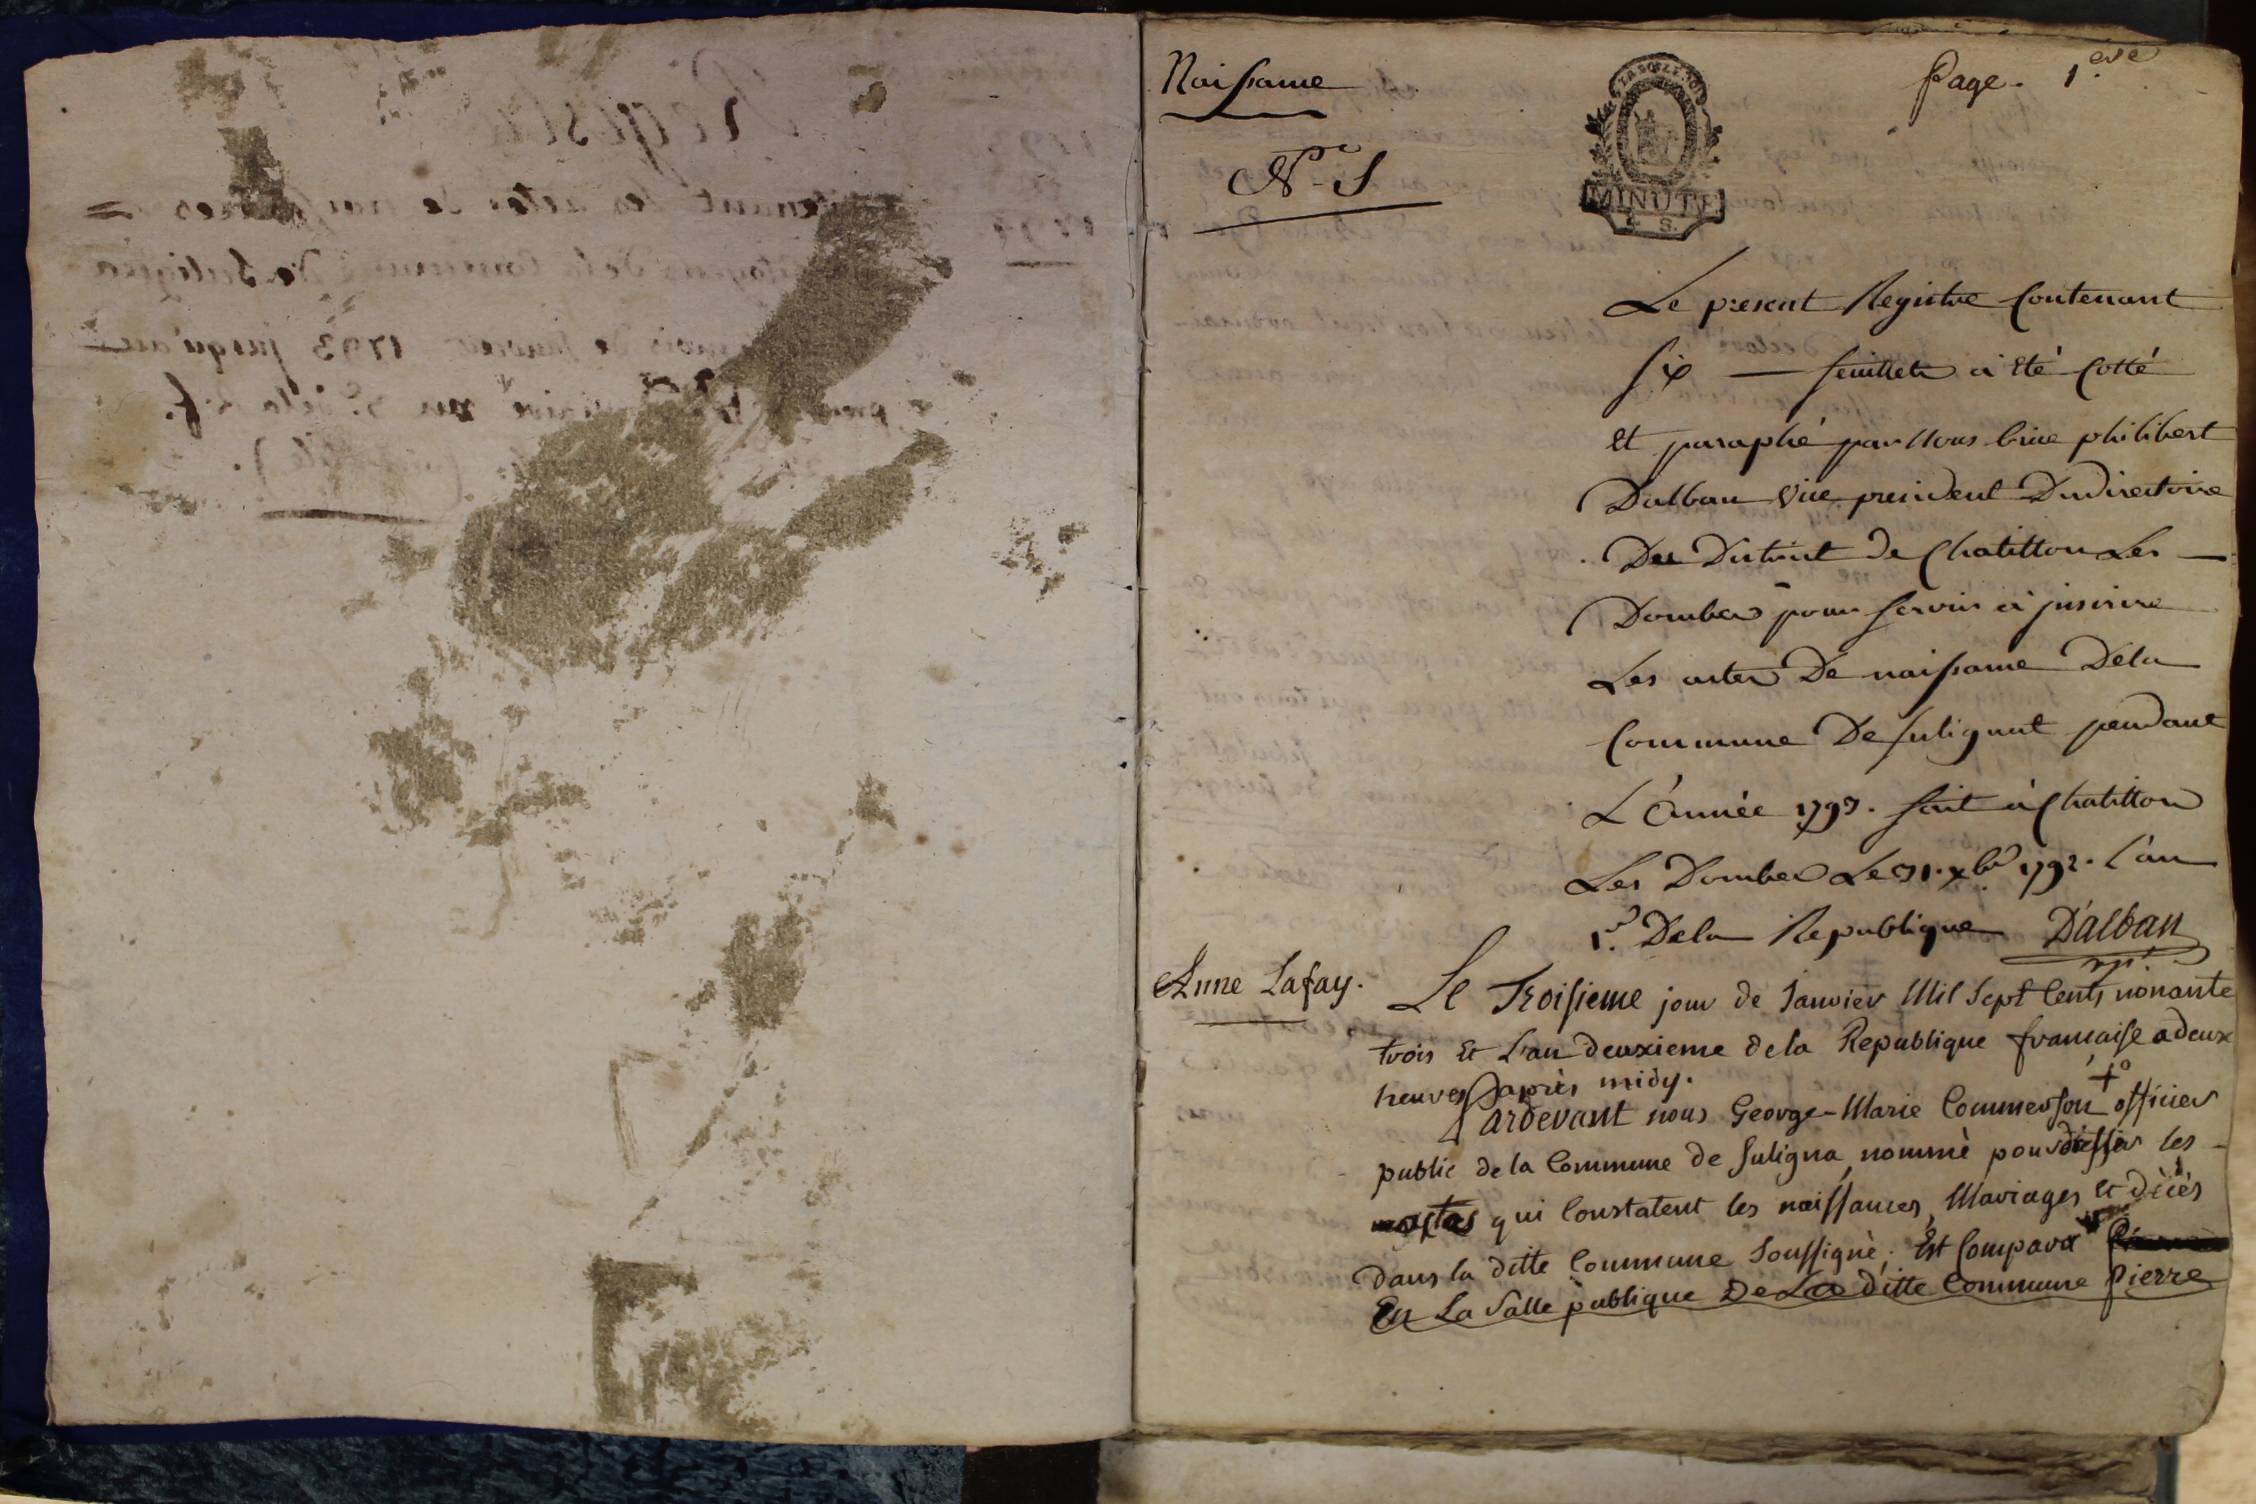 Naissance
N° 1
Page 1ere
LA LOI LE ROI
MINUTE
4 S.
Le present Registre Contenant
six — feuillets a été Cotté
et paraphé par Nous philibert
Dalban Vice president Du directoire
Du District de Chatillon Les —
Dombes pour servir à inscrire
Les actes De naissance De la
Commune De Sulignat pendant
L'Année 1793. fait à Chatillon
Les Dombes Le 31. xbre 1792. l'an
1er De la Republique D'alban
vpt.
Anne Lafay.
Le Troisieme jour de Janvier Mil Sept Cents nonante
trois Et L'an deuxieme de la Republique française a deux
heures après midy.
Pardevant nous George-Marie Commerson + officier
public de la Commune de Suligna, nommè pour dresser les -
actes qui Constatent les naissances, Mariages et dècès
dans la ditte Commune Soussignè; Est Comparu
En La Salle publique De La ditte Commune Pierre
Registre
contenant les actes de naissances =
citoyens de la Commune de Suligna
mois de Janvier 1793 jusqu'au
an 3e de la R. f.